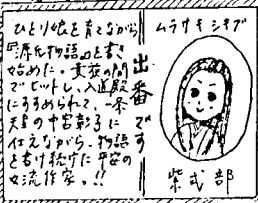 ひとり娘を育てながら
『源氏物語』を書き
始めた。貴族の間
でヒットし、入道殿
にすすめられて、一条
天皇の中宮彰子に
仕えながら、物語
を書き続けた平安の
女流作家。!!
出番です
ムラサキシキブ
紫式部